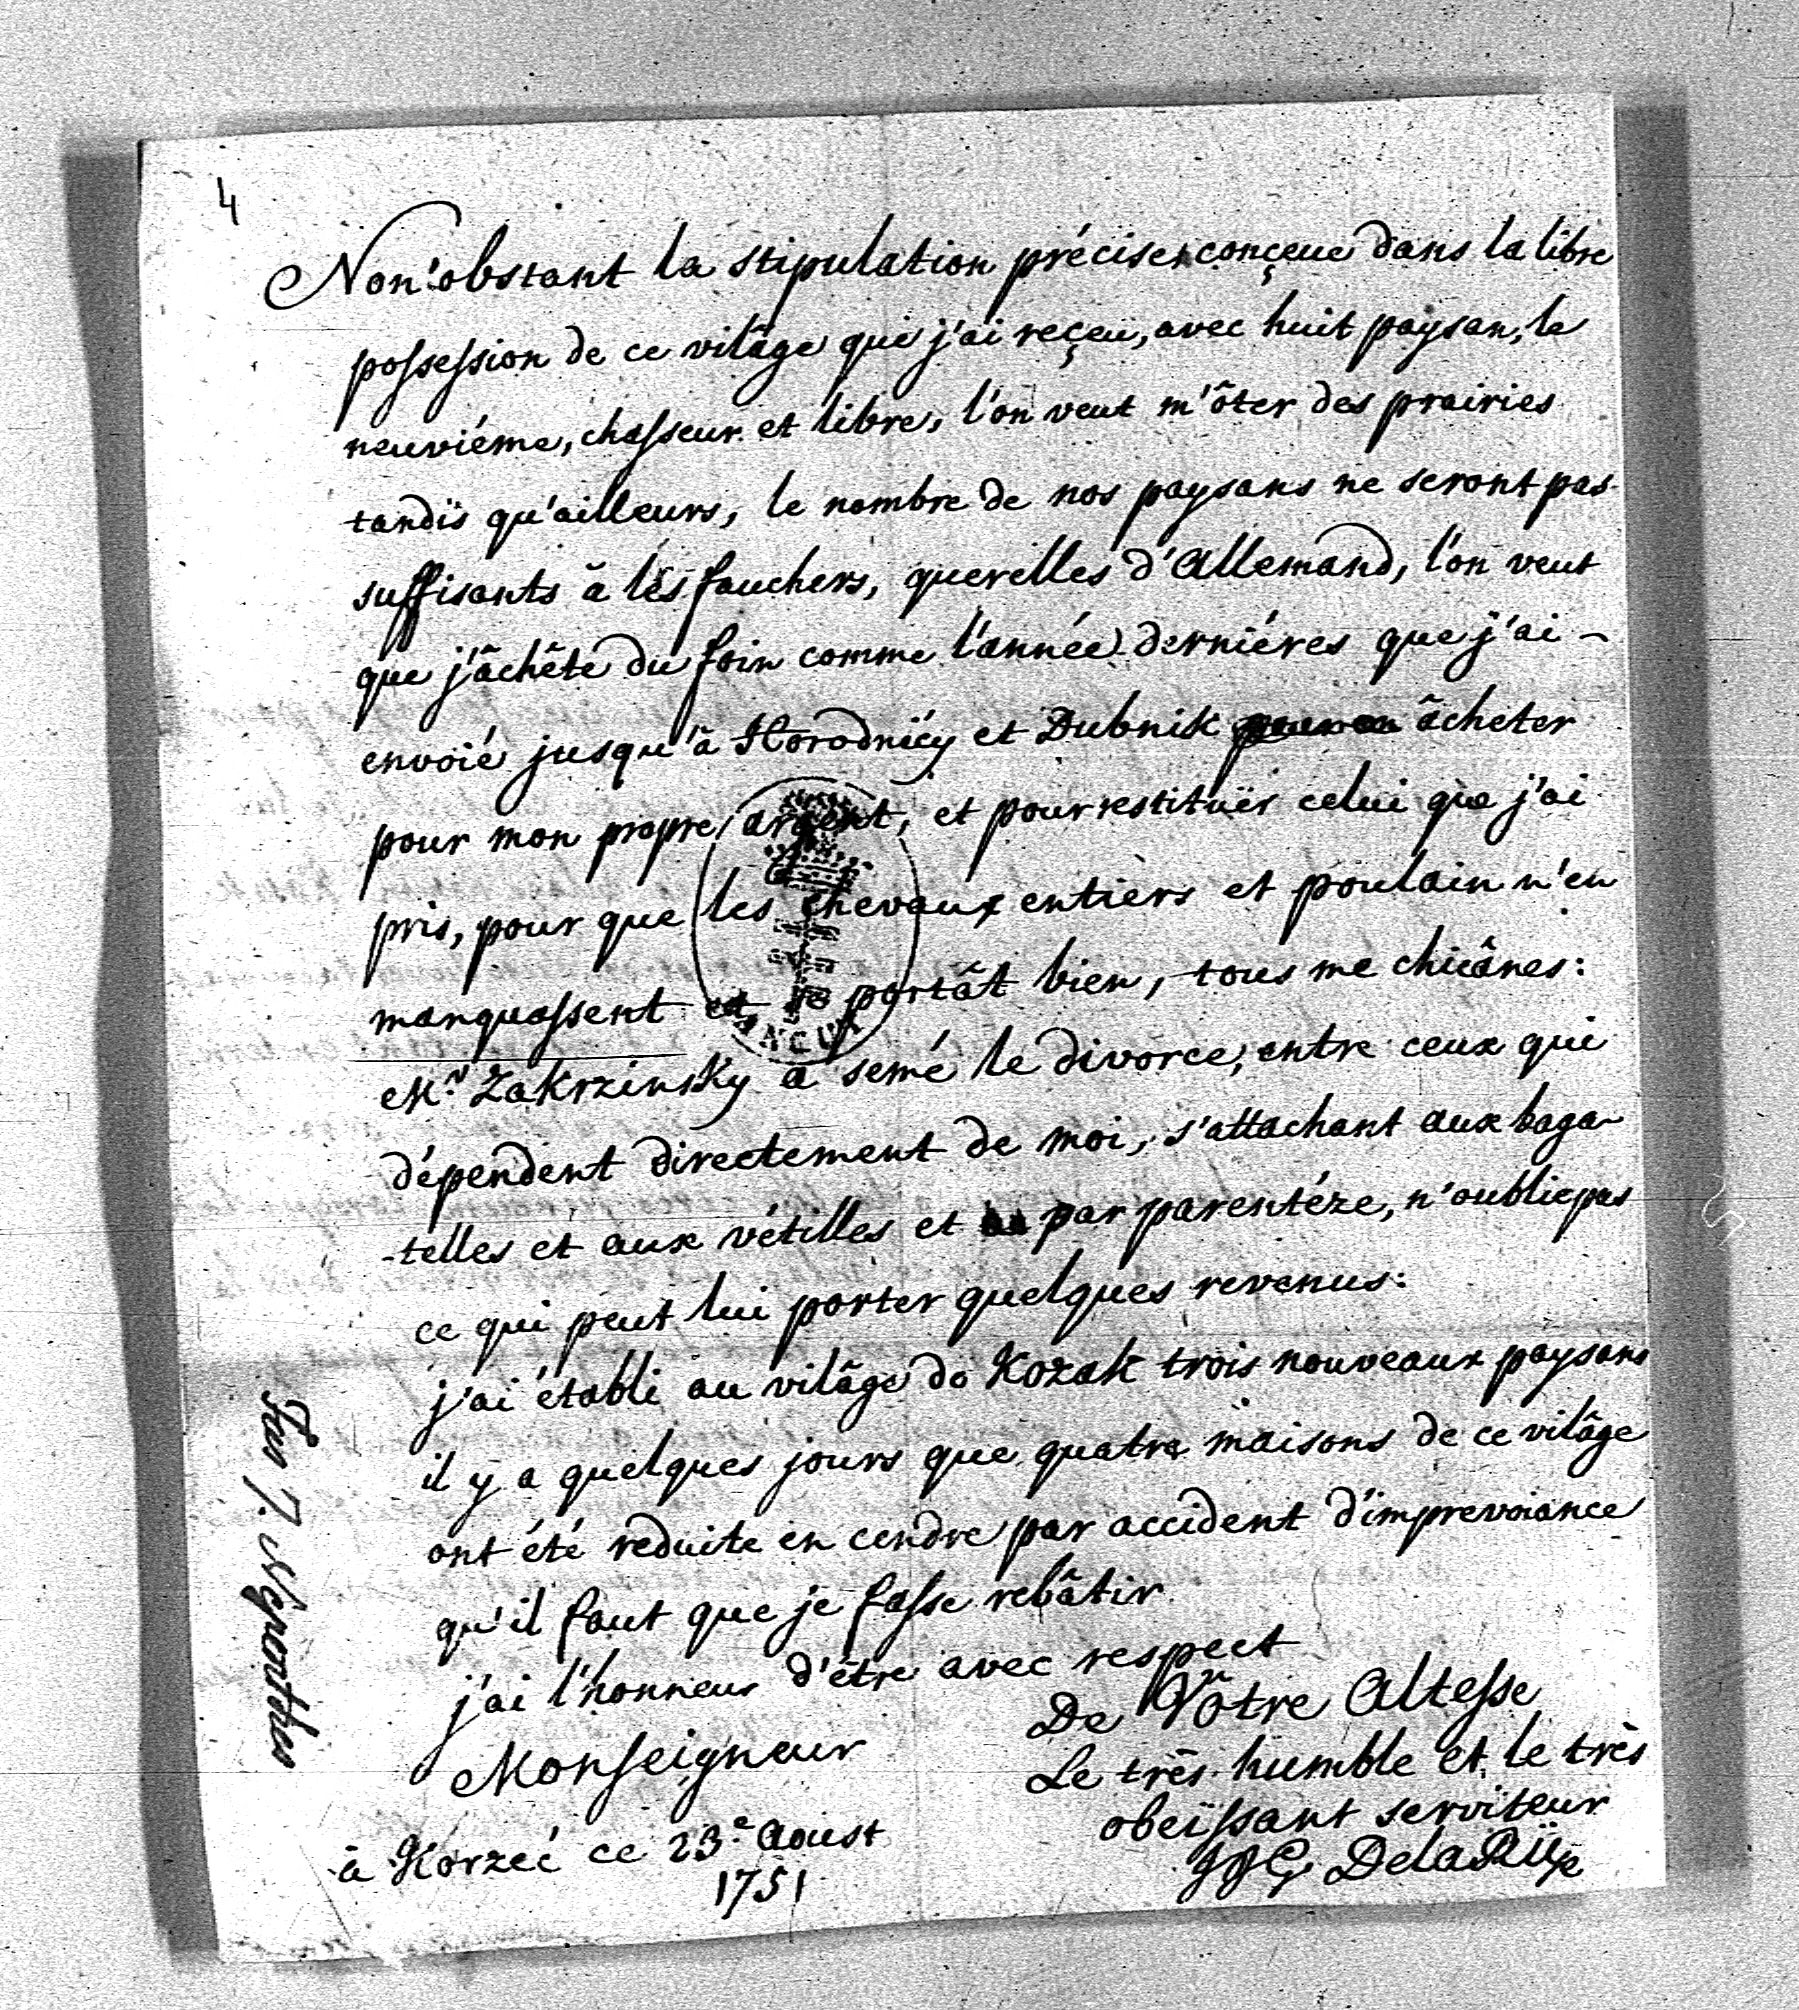 4
Non'obstant la stipulation précise, conçeue dans la libre
possession de ce vilâge que j'ai reçeu, avec huit paysan, le
neuviéme, chasseur et libre, l'on veut m'ôter des prairies
tandis qu'ailleurs, le nombre de nos paysans ne seront pas
suffisants â les fauchers, querelles d'Allemand, l'on veut
que j'âchête du foin comme l'année derniéres que j'ai
envoié jusqu'â Horodnicy et Dubnik âcheter
pour mon propre argent, et pour restituër celui que j'ai
pris, pour que les chevaux entiers et poulain n'en
manquassent et se portât bien, tous me chicânes:
Mr. Zakrzinsky a semé le divorce, entre ceux qui
dépendent directement de moi, s'attachant aux baga-
-telles et aux vétilles et par parentéze, n'oublie pas
ce qui peut lui porter quelques revenus:
j'ai établi au vilâge de Kozak trois nouveaux paysans
il y a quelques jours que quatre maisons de ce vilâge
ont été reduite en cendre par accident d'imprevoiance
qu'il faut que je fasse rebâtir
j'ai l'honneur d'être avec respect
De Vôtre Altesse
Monseigneur
Le três humble et le très
obeïssant serviteur
à Korzec ce 23e Aoust
1751
JJG DelaRüe